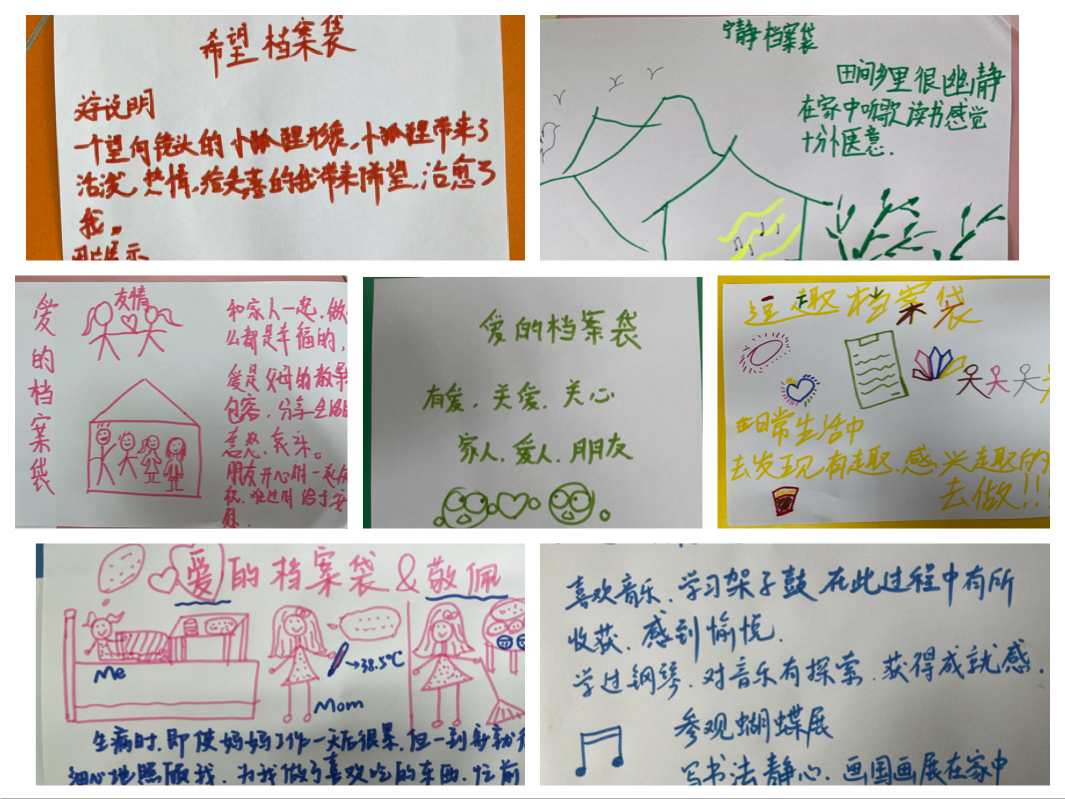 希望档案袋
文字说明
一个望向镜头的小狐狸形象,小狐狸带来了
活泼,热情,给失落的我带来希望,治愈了
我。
宁静档案袋
田间乡里很幽静
在家中听歌读书感觉
十分惬意.
爱的档案袋
友情
和家人一起,做
么都是幸福的,
爱是父母的教导
包容,分享
朋友开心时一起
难过时给予安
慰.
爱的档案袋
有爱.关爱.关心
家人.爱人.朋友
逗趣档案袋
在日常生活中
去发现有趣、感兴趣的
去做!!!
爱的档案袋&敬佩
Me
→38.5℃
Mom
生病时,即使妈妈工作一天后很累,但一到家就
细心地照顾我,为我做了喜欢吃的东西,忙前
喜欢音乐.学习架子鼓在此过程中有所
收获.感到愉悦.
学过钢琴.对音乐有探索.获得成就感.
参观蝴蝶展
写书法静心.画国画展在家中